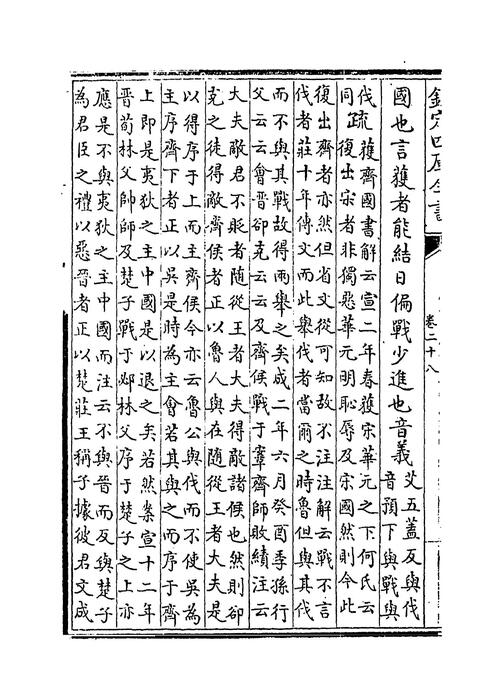 欽定四庫全書
卷二十八
國也言獲者能結日偏戰少進也音義
艾五蓋反與伐
音預下與戰與
伐疏獲齊國書解云宣二年春獲宋華元之下何氏云
同復出宋者非獨惡華元明恥辱及宋國然則今此
復出齊者亦然但省文從可知故不注注解云戰不言
伐者莊十年傳文而此舉伐者當爾之時魯但與其伐
而不與其戰故得兩舉之矣成二年六月癸酉季孫行
父云云會晉郤克云云及齊侯戰于鞌齊師敗績注云
大夫敵君不貶者隨從王者大夫得敵諸侯也然則郤
克之徒得敵齊侯者正以魯人與在隨從王者大夫是
以得序于上而主齊侯今亦云魯公與伐而不使吳為
主序齊下者正以吳是時為主會若其與之而序于齊
上即是夷狄之主中國是以退之矣若然案宣十二年
晉荀林父帥師及楚子戰于邲林父序于楚子之上亦
應是不與夷狄之主中國而注云不與晉而反與楚子
為君臣之禮以惡晉者正以楚莊王稱子據彼君文成